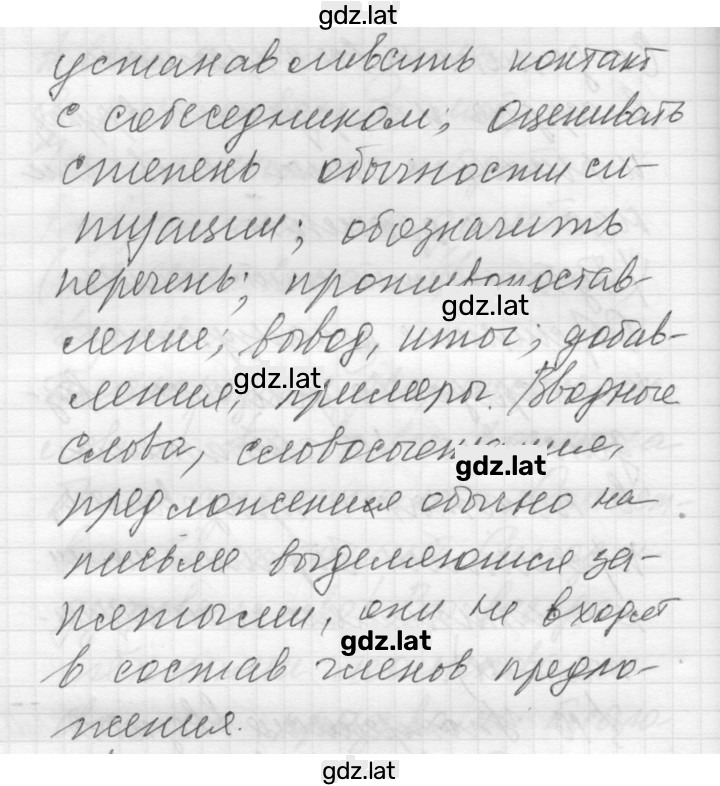 gdz.lat
устанавливать контакт
с собеседником; оценивать
степень обычности си-
туации; обозначить
перечень; противопостав-
gdz.lat
ление; вывод, итог; добав-
gdz.lat
ления, примеры. Вводные
слова, словосочетания,
gdz.lat
предложения обычно на
письме выделяются за-
пятыми, они не входят
gdz.lat
в состав членов предло-
жения.
gdz.lat